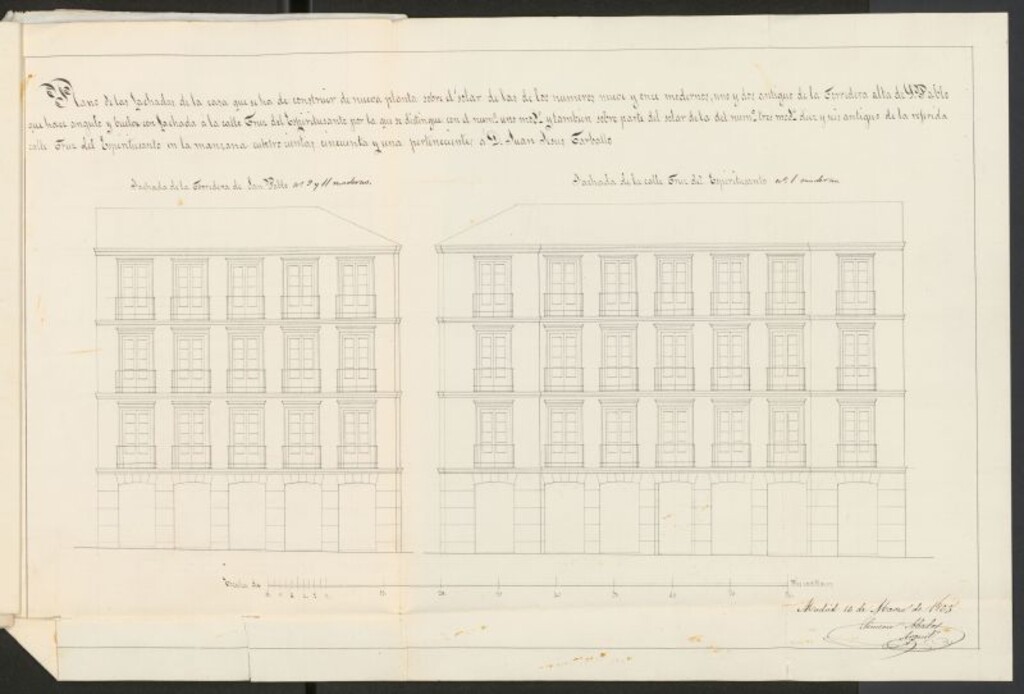 Plano de las fachadas de la casa que se ha de construir de nueva planta sobre el solar de las de los numeros nueve y once modernos, uno y dos antiguo de la Corredera alta de S. Pablo
que hace angulo y vuelve con fachada a la calle Cruz del Espiritusanto por la que se distingue con el num.º uno mod.º y tambien sobre parte del solar de la del num.º tres mod.º diez y seis antiguo de la referida
calle Cruz del Espiritusanto en la manzana cuatro cientas cincuenta y una perteneciente a D. Juan
Fachada de la Corredera de San Pablo nº 9 y 11 modernos.
Fachada de la calle Cruz del Espiritusanto nº 1 moderno
Escala de
Madrid 12 de Marzo de